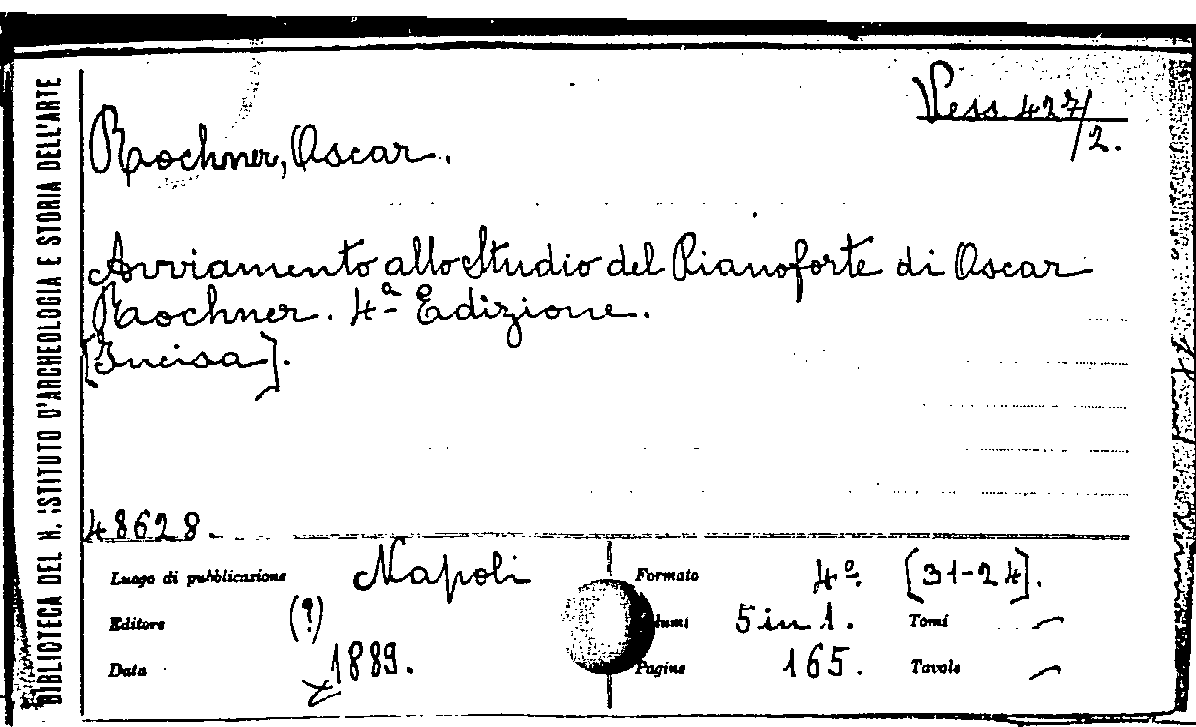 Vess. 427/2.
Raochner, Oscar.
Avviamento allo Studio del Pianoforte di Oscar
Raochner. 4ª Edizione.
[Incisa].
48628.
Luogo di pubblicazione Napoli Formato 4º. [31-24].
Editore (?) Volumi 5 in 1. Tomi —
Data 1889. Pagine 165. Tavole —
BIBLIOTECA DEL R. ISTITUTO D'ARCHEOLOGIA E STORIA DELL'ARTE